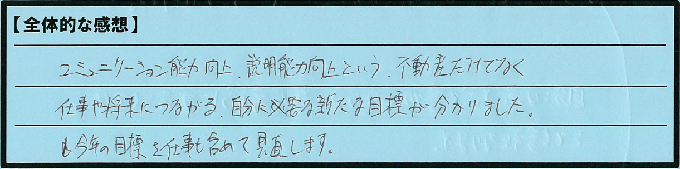 【全体的な感想】
コミュニケーション能力向上、説明能力向上という、不動産だけでなく
仕事や将来につながる、自分に必要な新たな目標が分かりました。
今年の目標を仕事も含めて見直します。